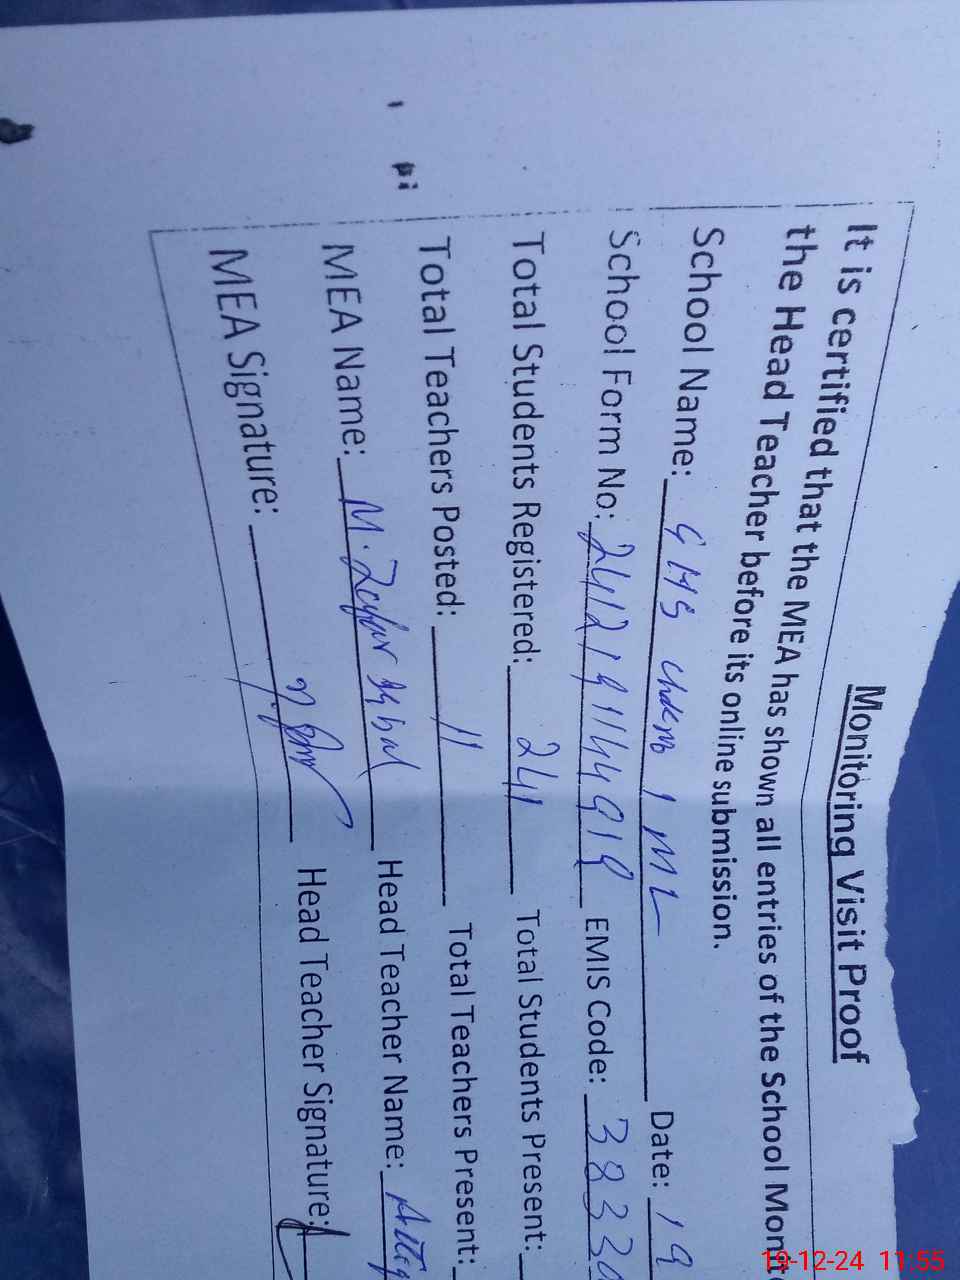 Monitoring Visit Proof
It is certified that the MEA has shown all entries of the School
the Head Teacher before its online submission.
School Name: GMS 1 ML Date: 19
School Form No: EMIS Code: 3833
Total Students Registered: 241 Total Students Present:
Total Teachers Posted: 11 Total Teachers Present:
MEA Name: M. Zafar Iqbal Head Teacher Name:
MEA Signature: Head Teacher Signature:
19-12-24 11:55